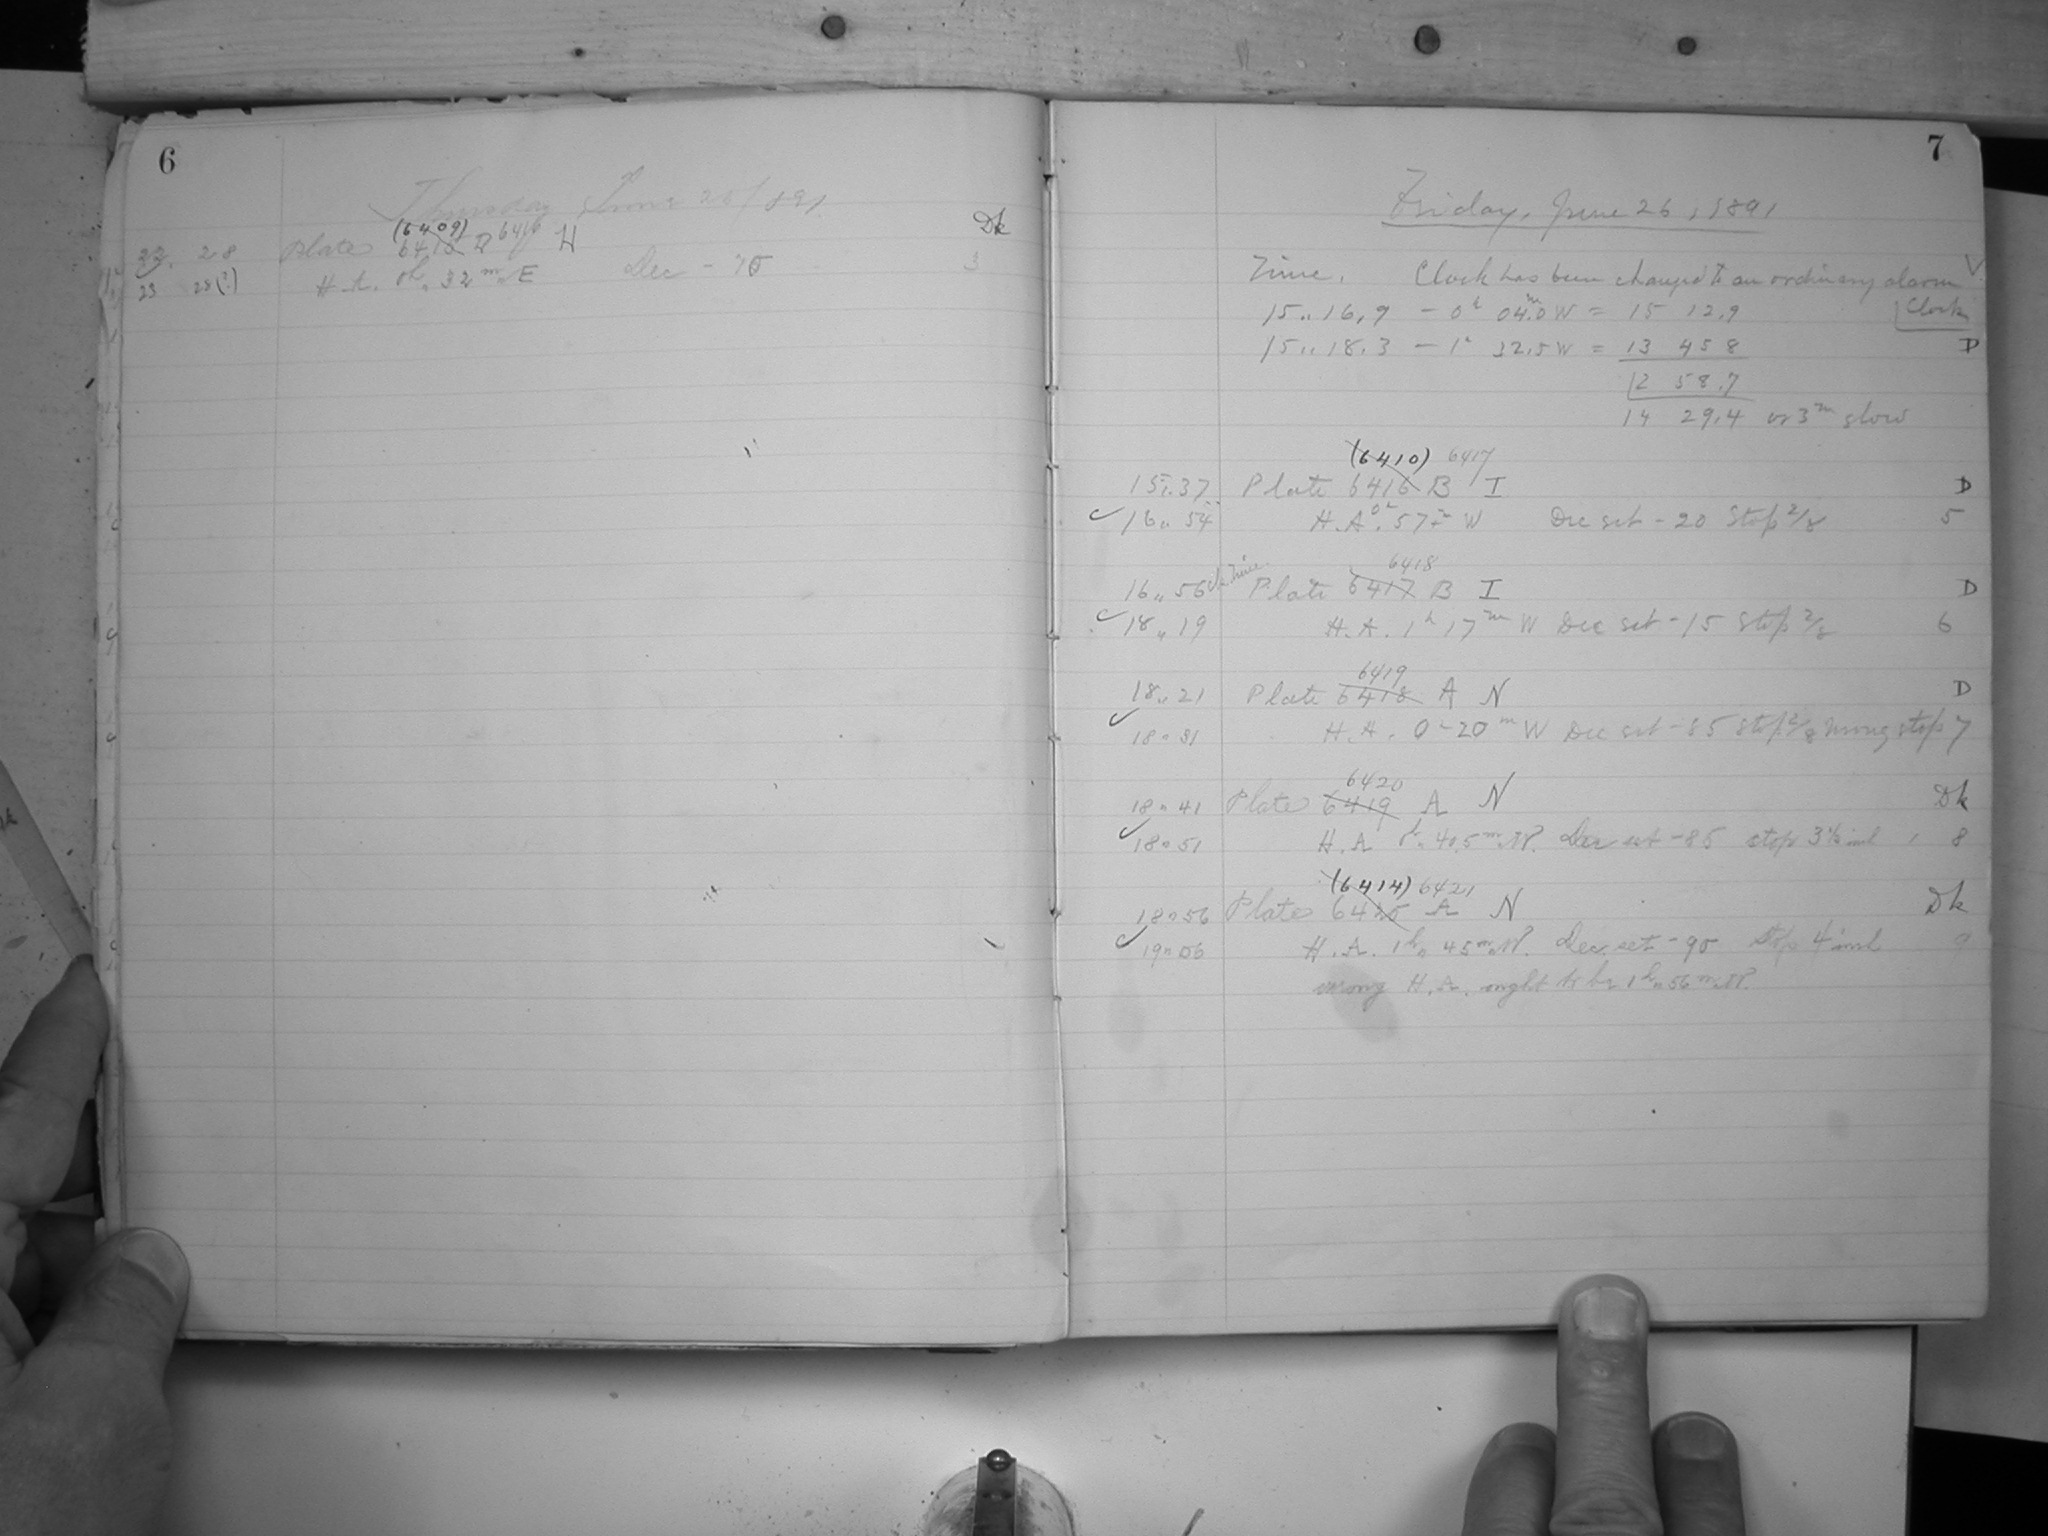 6
Thursday June 25/1891
(6409) 6416
22. 28 Plate 6415 D H Dk
23 28(?) H.A. 0h.. 32m. E Dec - 70 3
7
Friday, June 26, 1891
Time. Clock has been changed to an ordinary alarm
Clock
15.. 16,9 - 0h 04.0m W = 15 12,9
15.. 18.3 - 1h 32.5 W = 13 45 8 D
12 58.7
14 29.4 or 3m slow
(6410) 6417
15..37 Plate 6416 B I D
16.. 54 H.A. 0h 57m W Dec set - 20 Stop 2/8 5
6418
16.. 56 Plate 6417 B I D
18.. 19 H.A. 1h 17m W Dec set - 15 Stop 2/8 6
6419
18.. 21 Plate 6418 A N D
18.. 31 H.A. 0h 20m W Dec set - 85 stop 2/8 wrong stop 7
6420
18.. 41 Plate 6419 A N Dk
18.. 51 H.A. 0h.. 40,5m. W. Dec set - 85 stop 8
(6414) 6421
18.. 56 Plate A N Dk
19.. 06 H.A. 1h.. 45m. W. Dec. set - 90 Stop 9
wrong H.A. ought to be 1h.. 56m. W.